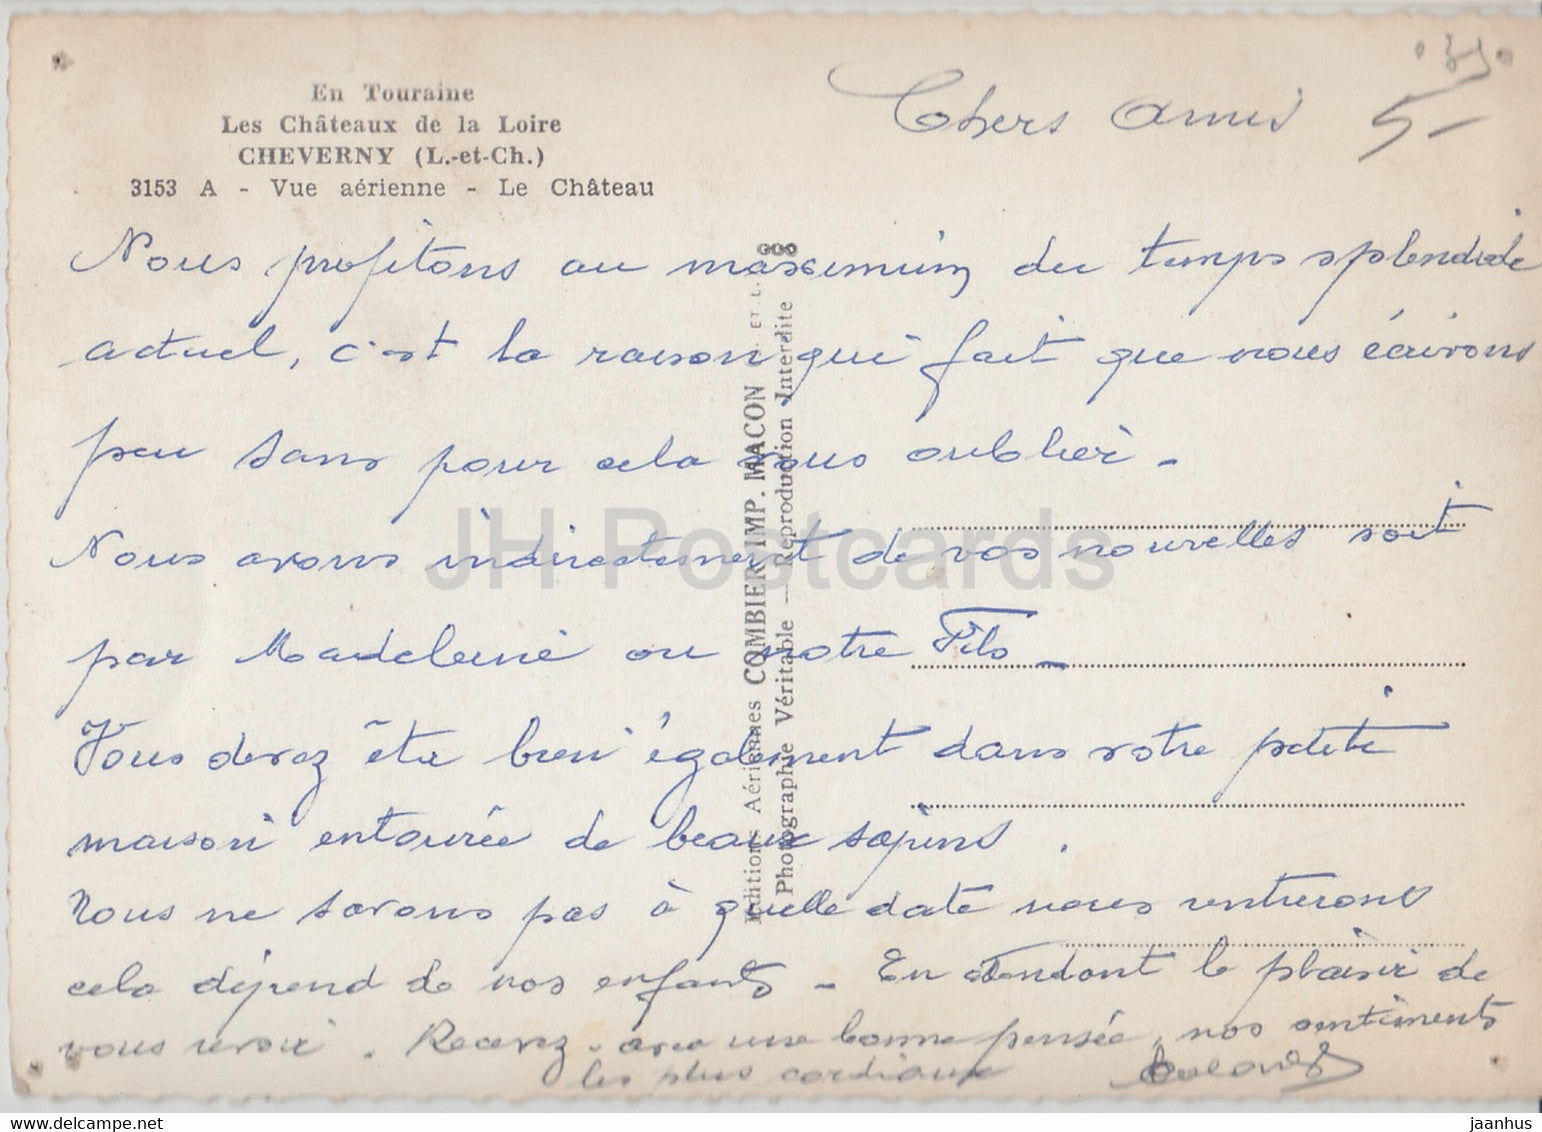 En Touraine
Les Châteaux de la Loire
CHEVERNY (L.-et-Ch.)
3153 A - Vue aérienne - Le Château
Chers Amis
5-
Nous profitons au maximum du temps splendide
actuel, c'est la raison qui fait que nous écrivons
peu sans pour cela vous oublier -
Nous avons indirectement de vos nouvelles soit
par Madeleine ou notre Fils -
Vous devez être bien également dans votre petite
maison entourée de beaux sapins .
Nous ne savons pas à quelle date nous rentrerons
cela dépend de nos enfants - En attendant le plaisir de
vous revoir . Recevez avec une bonne pensée, nos sentiments
les plus cordiaux
Editions Aériennes COMBIER IMP. MACON (S. ET L.)
Photographie Véritable — Reproduction Interdite
JH Postcards
www.delcampe.net
jaanhus